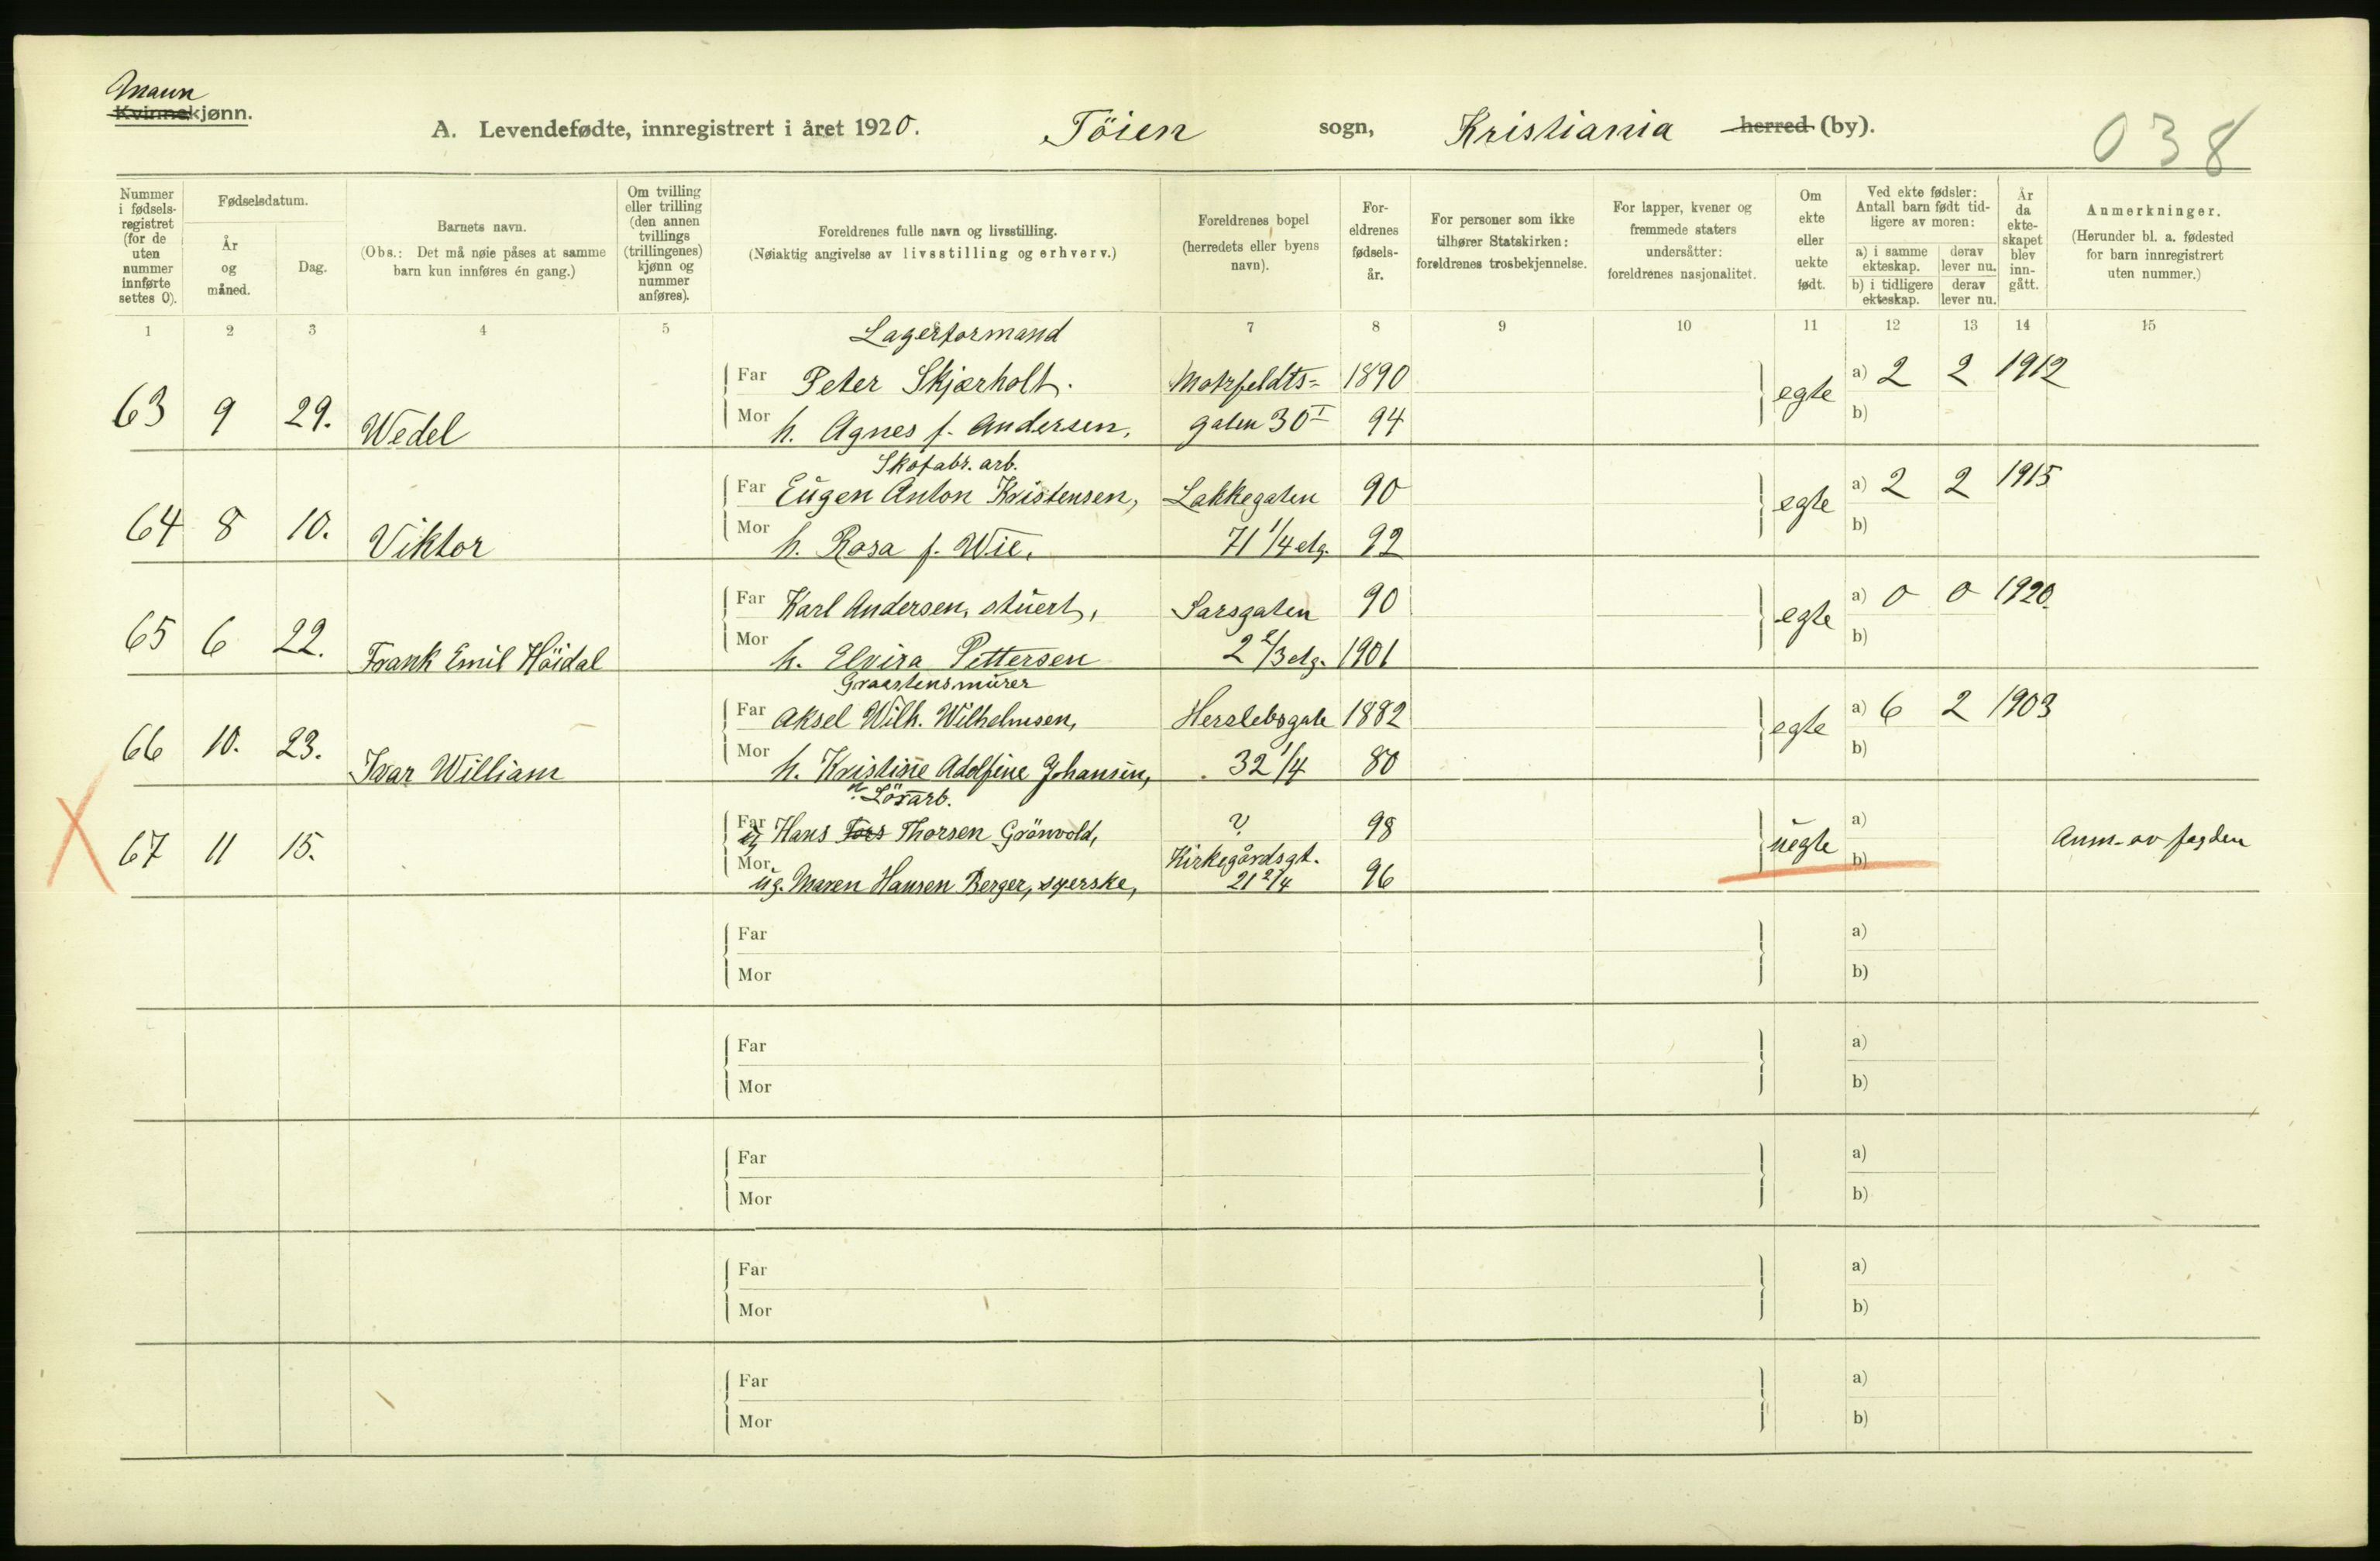 Mann
Kvinnekjønn.
A. Levendefødte, innregistrert i året 1920. Töien sogn, Kristiania herred (by).
038
Nummer i fødsels-registret (for de uten nummer innførte settes 0).
Fødselsdatum.
År og måned.
Dag.
Barnets navn.
(Obs.: Det må nøie påses at samme barn kun innføres én gang.)
Om tvilling eller trilling (den annen tvillings (trillingenes) kjønn og nummer anføres).
Foreldrenes fulle navn og livsstilling.
(Nøiaktig angivelse av livsstilling og erhverv.)
Foreldrenes bopel (herredets eller byens navn).
For-eldrenes fødsels-år.
For personer som ikke tilhører Statskirken: foreldrenes trosbekjennelse.
For lapper, kvener og fremmede staters undersåtter: foreldrenes nasjonalitet.
Om ekte eller uekte født.
Ved ekte fødsler: Antall barn født tid-ligere av moren:
a) i samme ekteskap. derav lever nu.
b) i tidligere ekteskap. derav lever nu.
År da ekte-skapet blev inn-gått.
Anmerkninger.
(Herunder bl. a. fødested for barn innregistrert uten nummer.)
1 2 3 4 5 7 8 9 10 11 12 13 14 15
Lagerformand
Far Peter Skjærholt. Motzfeldts= 1890 a) 2 2 1912
63 9 29. Wedel Mor h. Agnes f. Andersen, galen 30 I 94 egte b)
Skofabr. arb.
Far Eugen Anton Kristensen, Lakkegaten 90 a) 2 2 1915
64 8 10. Viktor Mor h. Rosa f. Wie, 71 1/4 etg. 92 egte b)
Far Karl Andersen, stuert, Sarsgaten 90 a) 0 0 1920.
65 6 22. Frank Emil Höidal Mor h. Elvira Pettersen 2 2/3 etg. 1901 egte b)
Graastensmurer
Far Aksel Wilh. Wilhelmsen, Herslebsgate 1882 a) 6 2 1903
66 10. 23. Ivar William Mor h. Kristine Adolfine Johansen, 32 1/4 80 egte b)
Lösarb.
Far ug Hans Tors Thorsen Grönvold, ? 98 a)
67 11 15. Mor ug. Maren Hansen Berger, syerske, Kirkegårdsgt. 21 2/4 96 uegte b) Anm. av fogden
Far a)
Mor b)
Far a)
Mor b)
Far a)
Mor b)
Far a)
Mor b)
Far a)
Mor b)